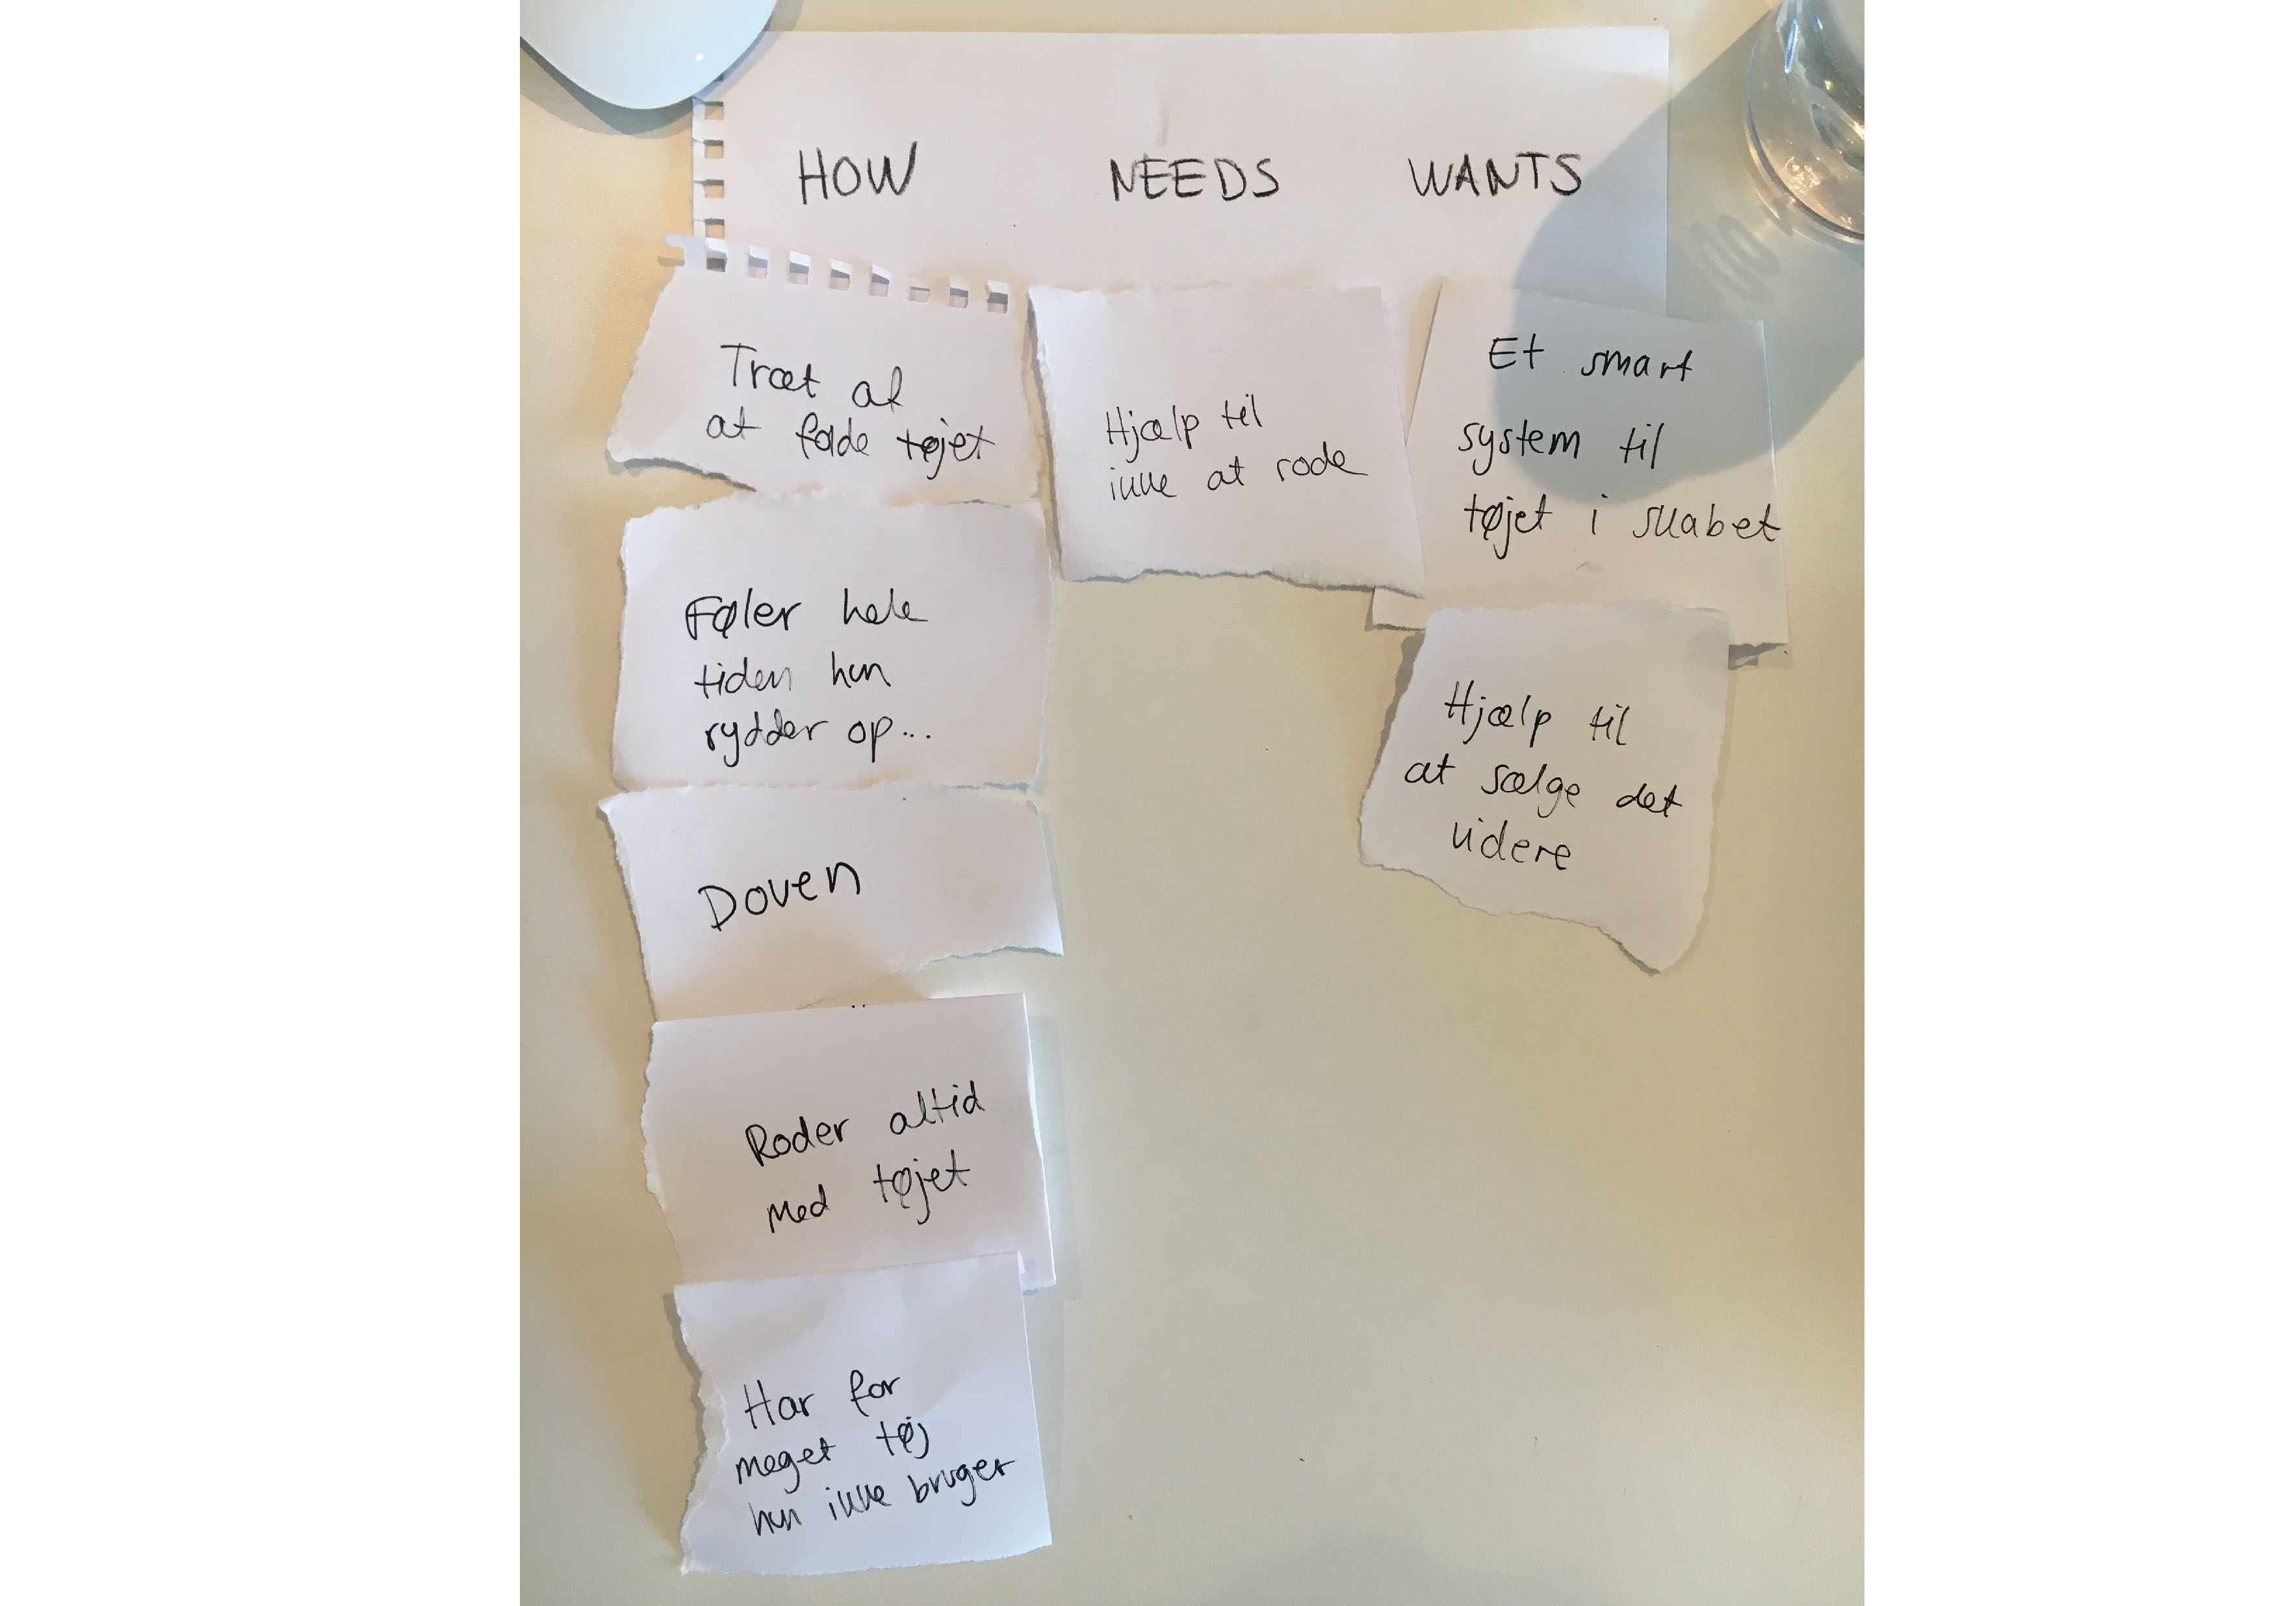 HOW NEEDS WANTS
Træt af
at folde tøjet
Føler hele
tiden hun
rydder op...
Doven
Roder altid
med tøjet
Har for
meget tøj
hun ikke bruger
Hjælp til
ikke at rode
Et smart
system til
tøjet i skabet
Hjælp til
at sælge det
videre